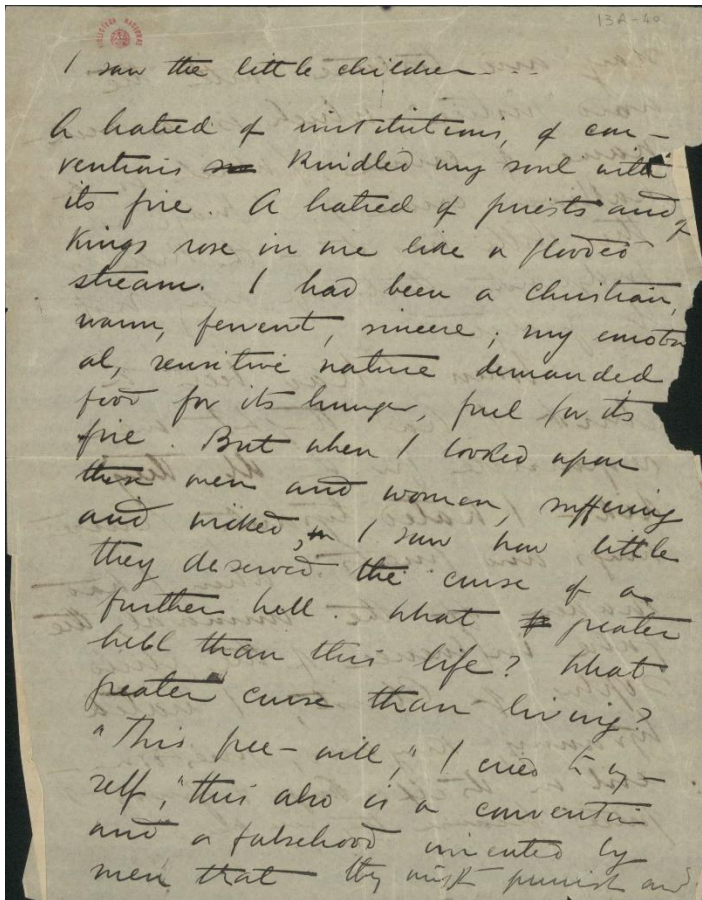 BIBLIOTECA NACIONAL
13A-40
I saw the little children...
A hatred of institutions, of con-
ventions kindled my soul with
its fire. A hatred of priests and of
Kings rose in me like a flooded
stream. I had been a Christian,
warm, fervent, sincere; my emotion
al, sensitive nature demanded
food for its hunger, fuel for its
fire. But when I looked upon
these men and women, suffering
and wicked, I saw how little
they deserved the curse of a
further hell. What greater
hell than this life? What
greater curse than living?
"This free-will," I cried to my-
self, "this also is a convention
and a falsehood invented by
men that they might punish and